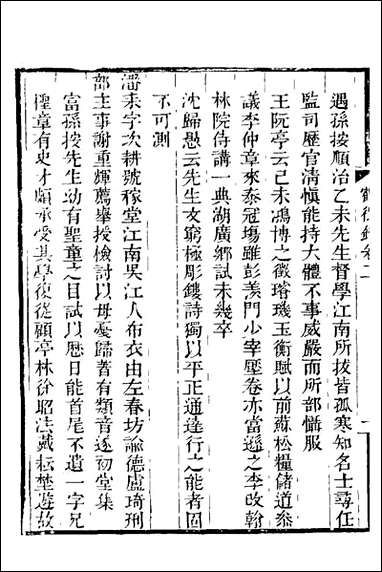 鶴徵錄卷二
遇孫按順治乙未先生督學江南所拔皆孤寒知名士尋任
監司歷官清愼能持大體不事威嚴而所部懾服
王阮亭云己未鴻博之徵璿璣玉衡賦以前蘇松糧儲道叅
議李仲章來泰冠塲雖彭羨門少宰壓卷亦當遜之李改翰
林院侍講一典湖廣鄉試未幾卒
沈歸愚云先生文窮極彫鏤詩獨以平正通達行之能者固
不可測
潘耒字次耕號稼堂江南吳江人布衣由左春坊諭德盧琦刑
部主事謝重輝薦舉授檢討以母憂歸著有類音遂初堂集
富孫按先生幼有聖童之目試以曆日能首尾不遺一字兄
檉章有史才頗承受其學復從顧亭林徐昭法戴耘埜遊故